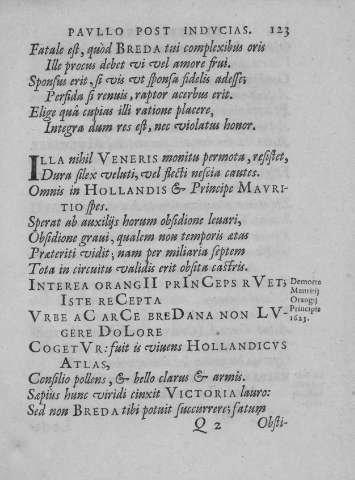 PAVLLO POST INDVCIAS. 123
Fatale est, quòd BREDA tui complexibus oris
Ille procus debet vi vel amore frui.
Sponsus erit, si vis vt sponsa fidelis adesse;
Perfida si renuis, raptor acerbus erit.
Elige quâ cupias illi ratione placere,
Integra dum res est, nec violatus honor.
ILLA nihil VENERIS monitu permota, resistet,
Dura silex veluti, vel flecti nescia cautes.
Omnis in HOLLANDIS & Principe MAVRI-
TIO spes.
Sperat ab auxilijs horum obsidione leuari,
Obsidione graui, qualem non temporis ætas
Præteriti vidit; nam per miliaria septem
Tota in circuitu validis erit obsita castris.
INTEREA ORANGII PRINCEPS RVET;
ISTE RECEPTA
VRBE AC ARCE BREDANA NON LV-
GERE DOLORE
COGETVR: fuit is viuens HOLLANDICVS
ATLAS,
Consilio pollens, & bello clarus & armis.
Sæpius hunc viridi cinxit VICTORIA lauro:
Sed non BREDA tibi potuit succurrere; fatum
Q 2 Obsti-
Demorte
Mauritij
Orangij
Principis
1625.